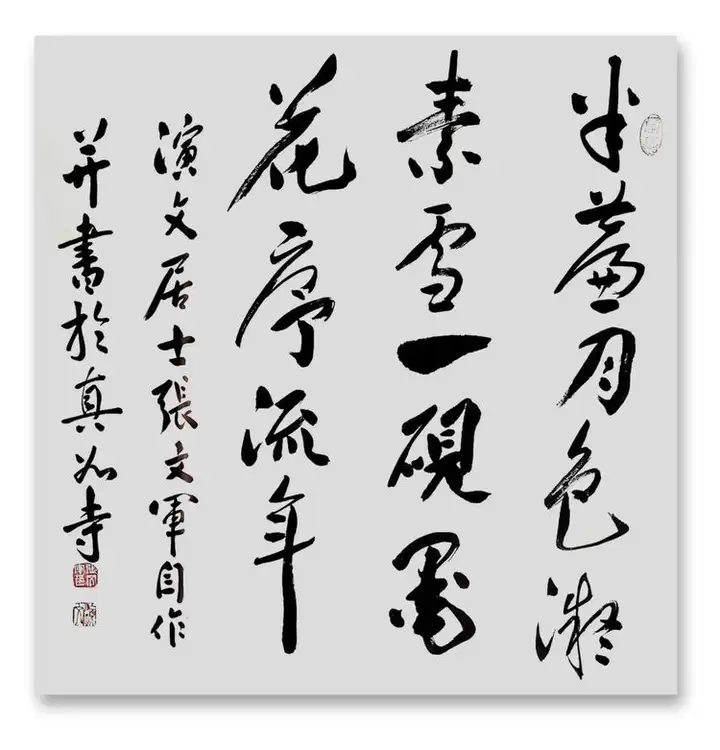 半簾月色凝
素雪一硯墨
花序流年
演文居士張文軍自作
并書於真如寺